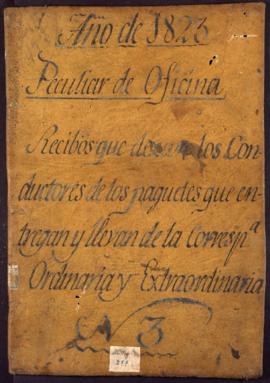 Año de 1823
Peculiar de Oficina
Recibos que dexan los Con-
ductores de los paquetes que en-
tregan y llevan de la Corresp.ª
Ordinaria y Extraordinaria
N 3